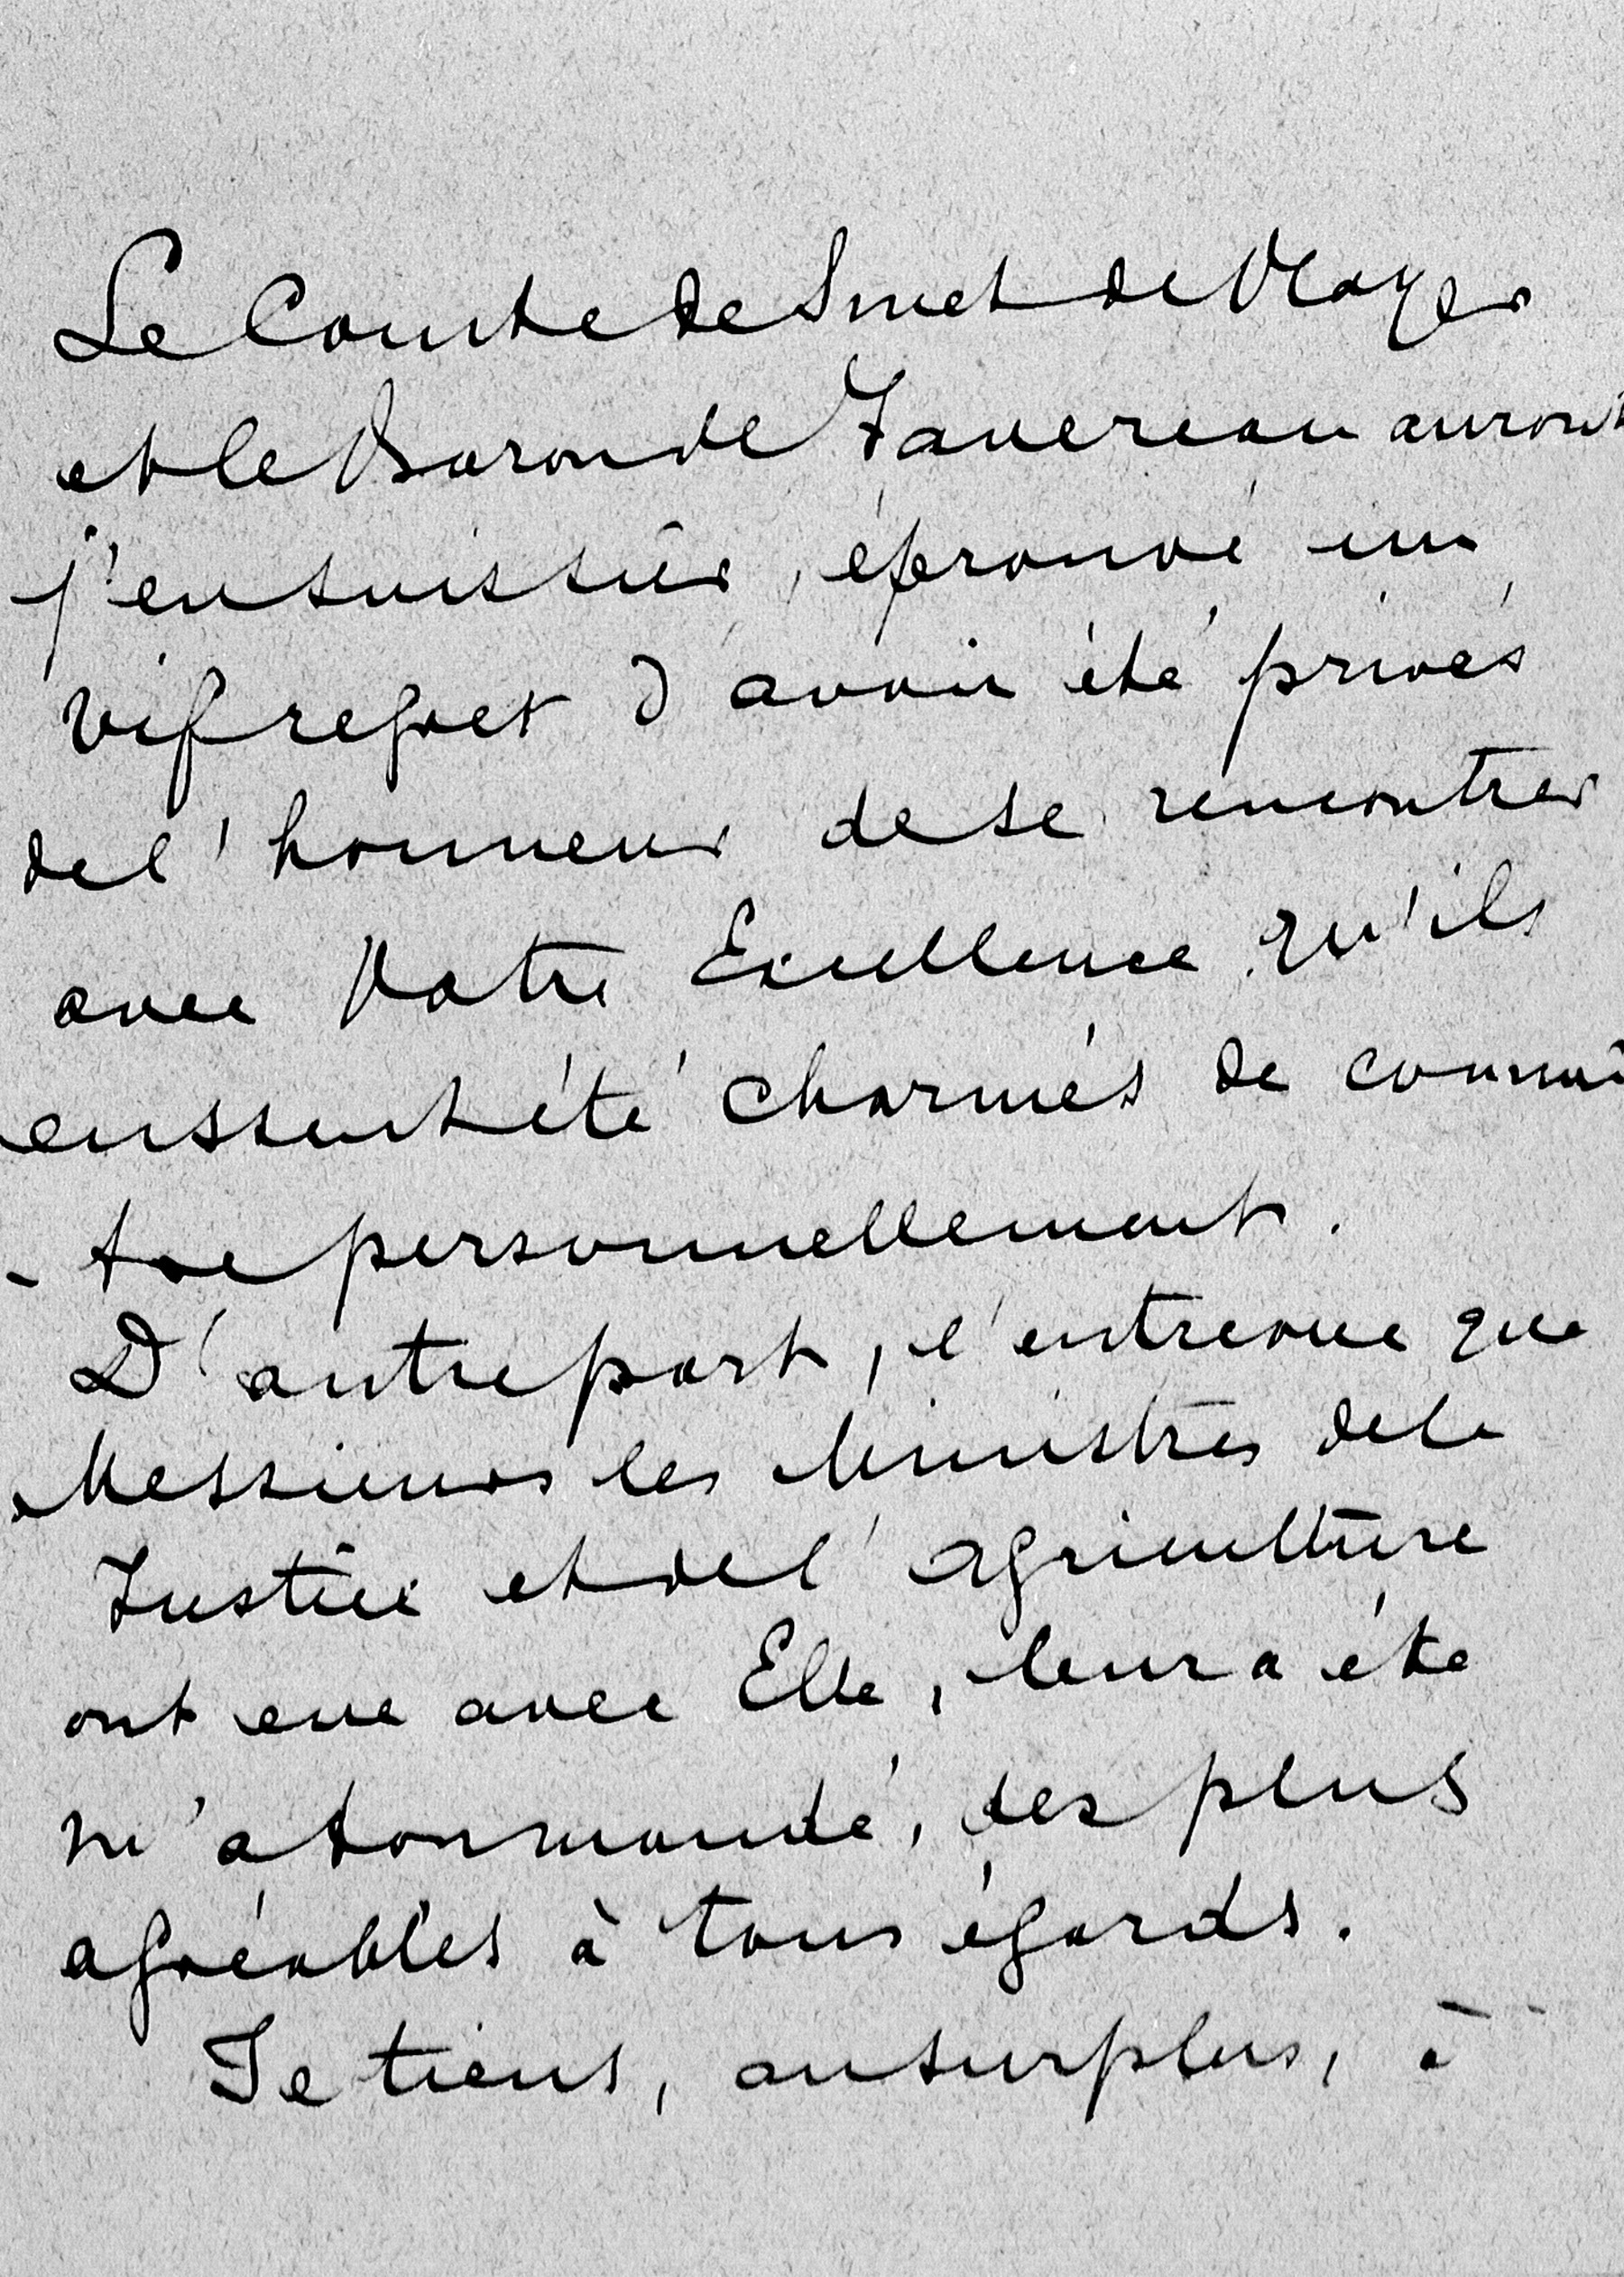 Le Comte de Smet de Nayer
et le Baron de Favereau auront
j'en suis sûr, éprouvé un
vif regret d'avoir été privés
de l'honneur de se rencontrer
avec Votre Excellence qu'ils
eussent été charmés de connaî
-tre personnellement.
D'autre part, l'entrevue que
Messieurs les Ministres de la
Justice et de l'agriculture
ont eue avec Elle, leur a été
m'a-t-on mandé, des plus
agréables à tous égards.
Je tiens, au surplus, à